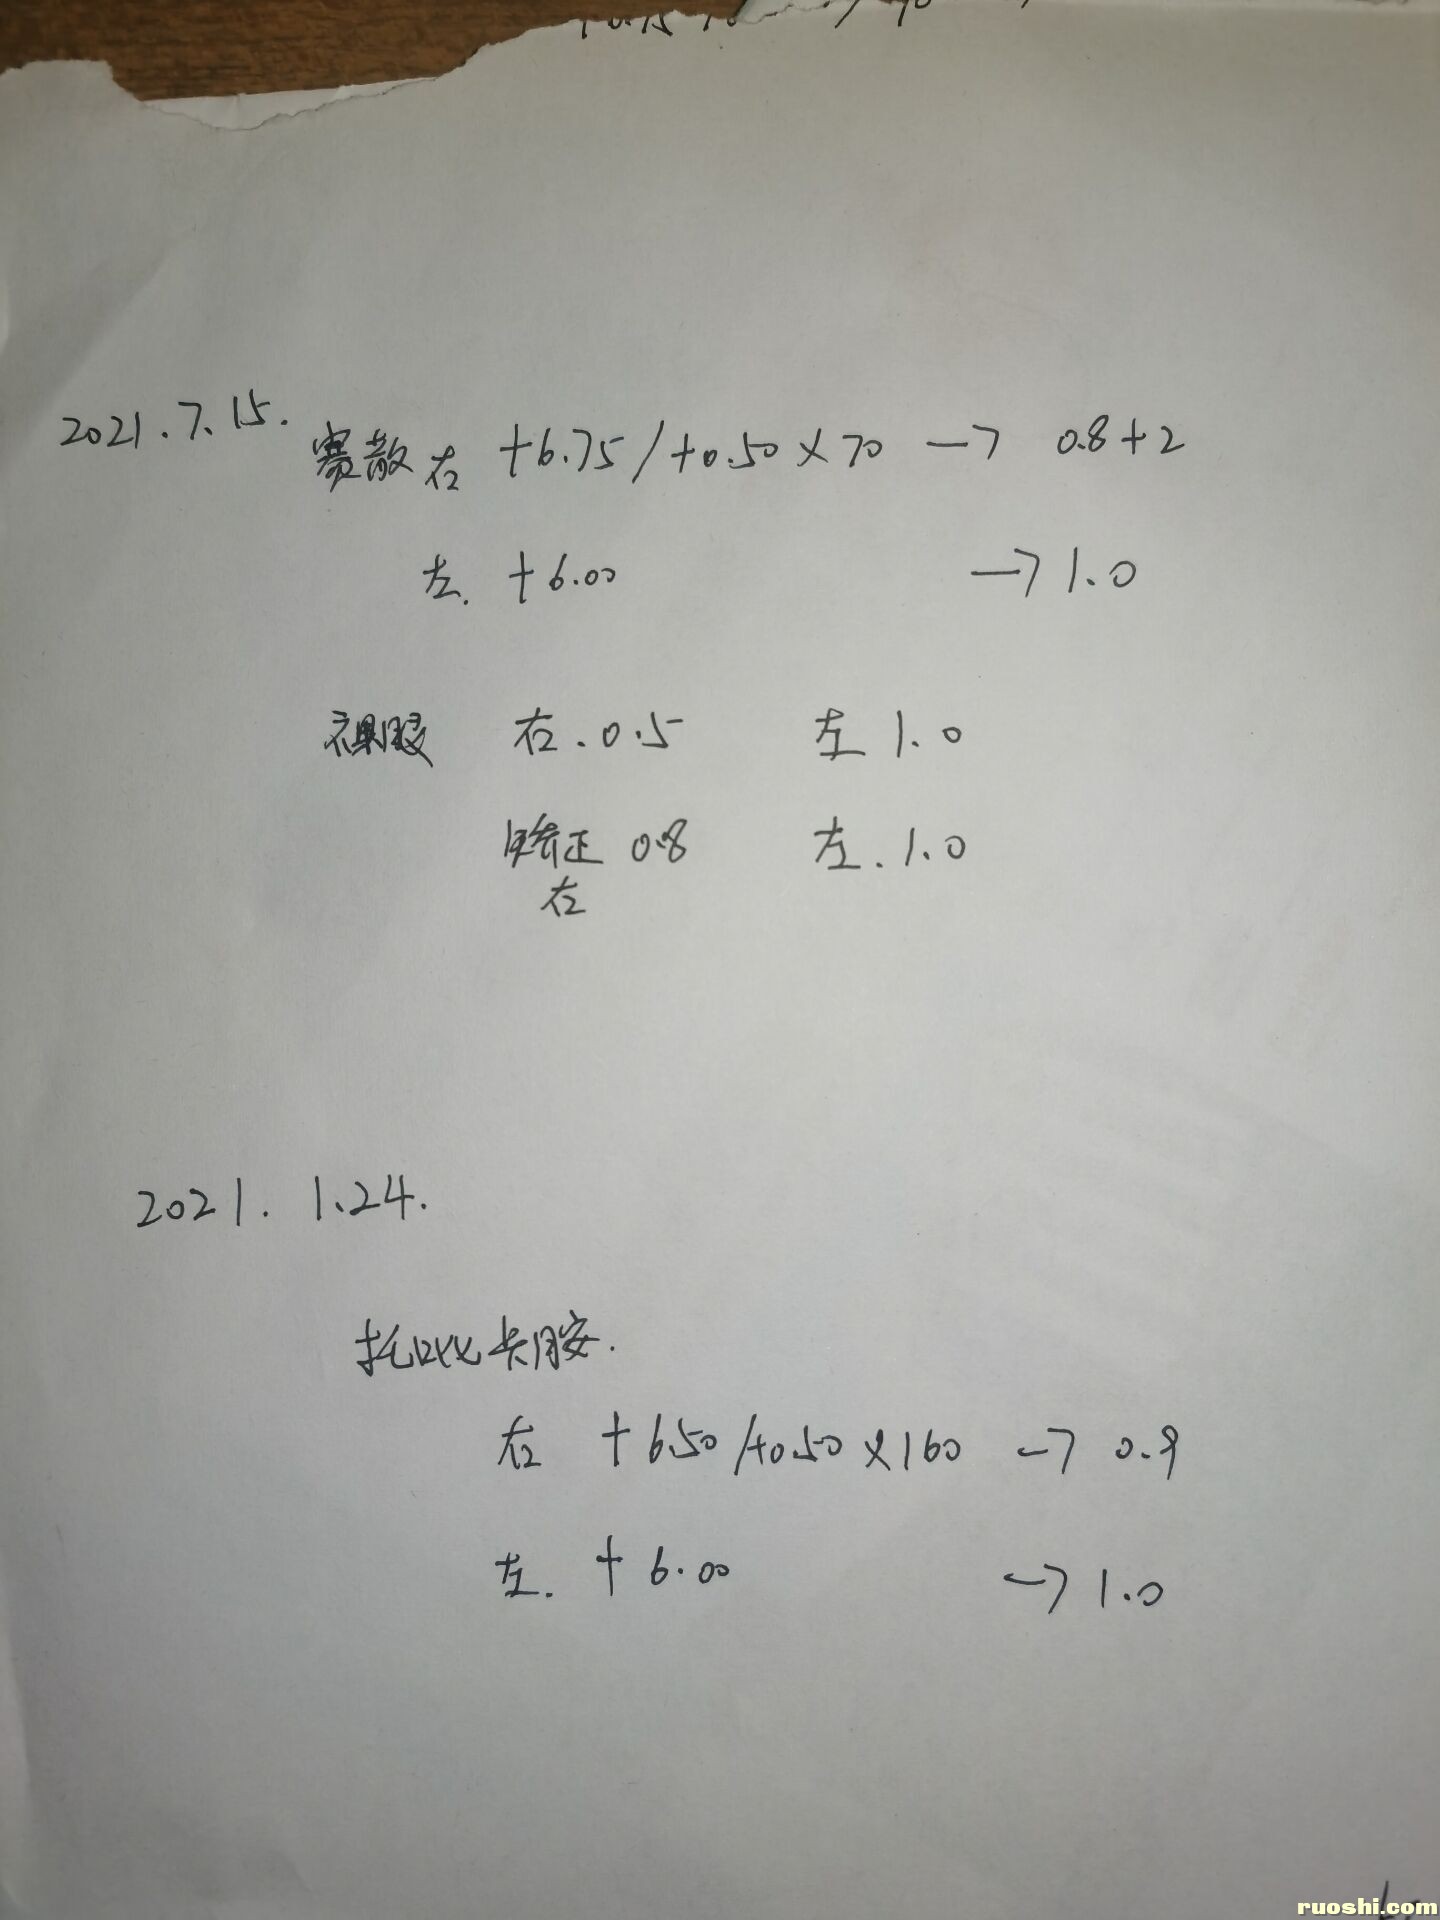 2021.7.15. 赛散 右 +6.75/+0.50×70 → 0.8+2
左. +6.00 → 1.0
裸眼 右.0.5 左 1.0
矫正 0.8 左.1.0
右
2021. 1.24.
托吡卡胺.
右 +6.50/+0.50×160 → 0.9
左. +6.00 → 1.0
ruoshi.com